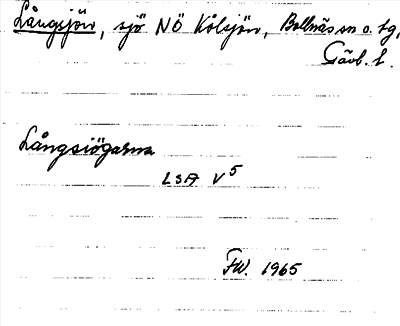 Långsjön, sjö NÖ Kölsjön, Bollnäs sn o. tg,
Gävl. l.
Långsiögarna
LSA V⁵
FW. 1965